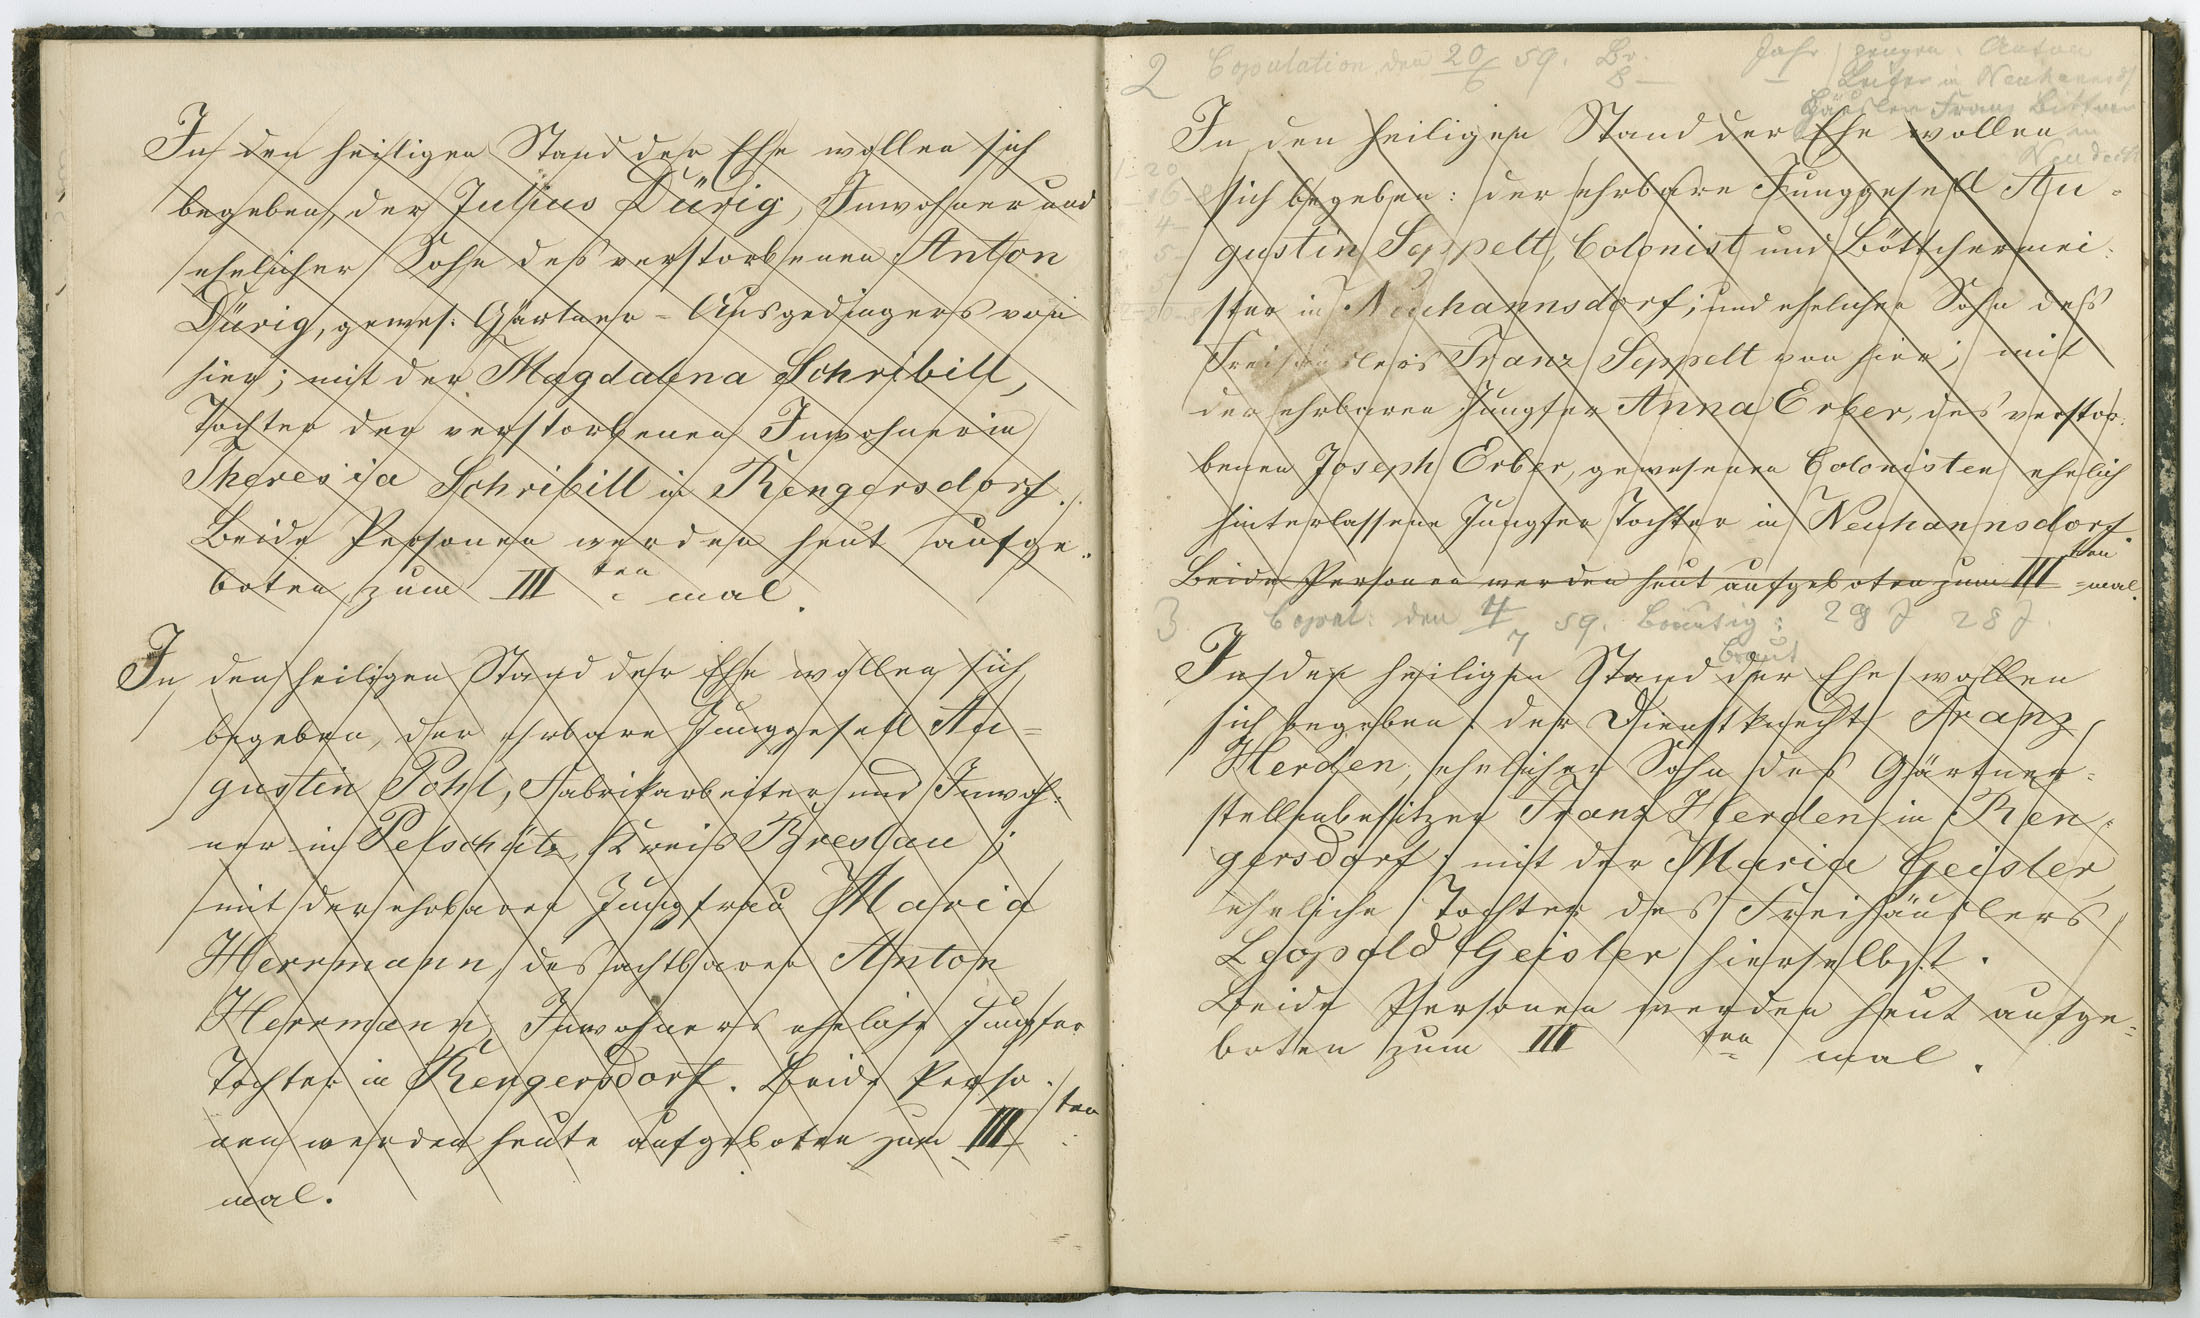 In den heiligen Stand der Ehe wollen sich
begeben, der Julius Dürig, Inwohner und
ehelicher Sohn des verstorbenen Anton
Dürig, gewes: Gärtner-Ausgedingers von
hier; mit der Magdalena Schribill,
Tochter der verstorbenen Inwohnerin
Theresia Schribill in Rengersdorf.
Beide Personen werden heut aufge-
boten zum III ten mal.
In den heiligen Stand der Ehe wollen sich
begeben, der ehrbare Junggesell Au=
gustin Pohl, Fabrikarbeiter und Inwoh-
ner in Pelschütz, Kreis Breslau;
mit der ehrbaren Jungfrau Maria
Herrmann, des achtbaren Anton
Herrmann, Inwohners eheliche Jungfer
Tochter in Rengersdorf. Beide Perso-
nen werden heute aufgeboten zum III ten
mal.
2 Copulation den 20/6 59. Br. Jahr Zeugen: Anton
8 in Neuhannsdf
Häusler Franz Bittner
In den heiligen Stand der Ehe wollen in
Neudeck
sich begeben: der ehrbare Junggesell Au=
gustin Seppelt, Colonist und Böttchermei-
ster in Neuhannsdorf; und ehelicher Sohn des
Freihäuslers Franz Seppelt von hier; mit
der ehrbaren Jungfer Anna Erber, des verstor-
benen Joseph Erber, gewesenen Colonisten ehelich
hinterlassene Jungfer Tochter in Neuhannsdorf.
Beide Personen werden heut aufgeboten zum III ten =mal.
3. Copul: den 4/7 59. Bräutig: 29 J 28 J.
Braut
In den heiligen Stand der Ehe wollen
sich begeben: der Dienstknecht Franz
Herden, ehelicher Sohn des Gärtner=
stellenbesitzer Franz Herden in Ren-
gersdorf; mit der Maria Geisler
eheliche Tochter des Freihäuslers
Leopold Geisler hierselbst.
Beide Personen werden heut aufge=
boten zum III ten mal.